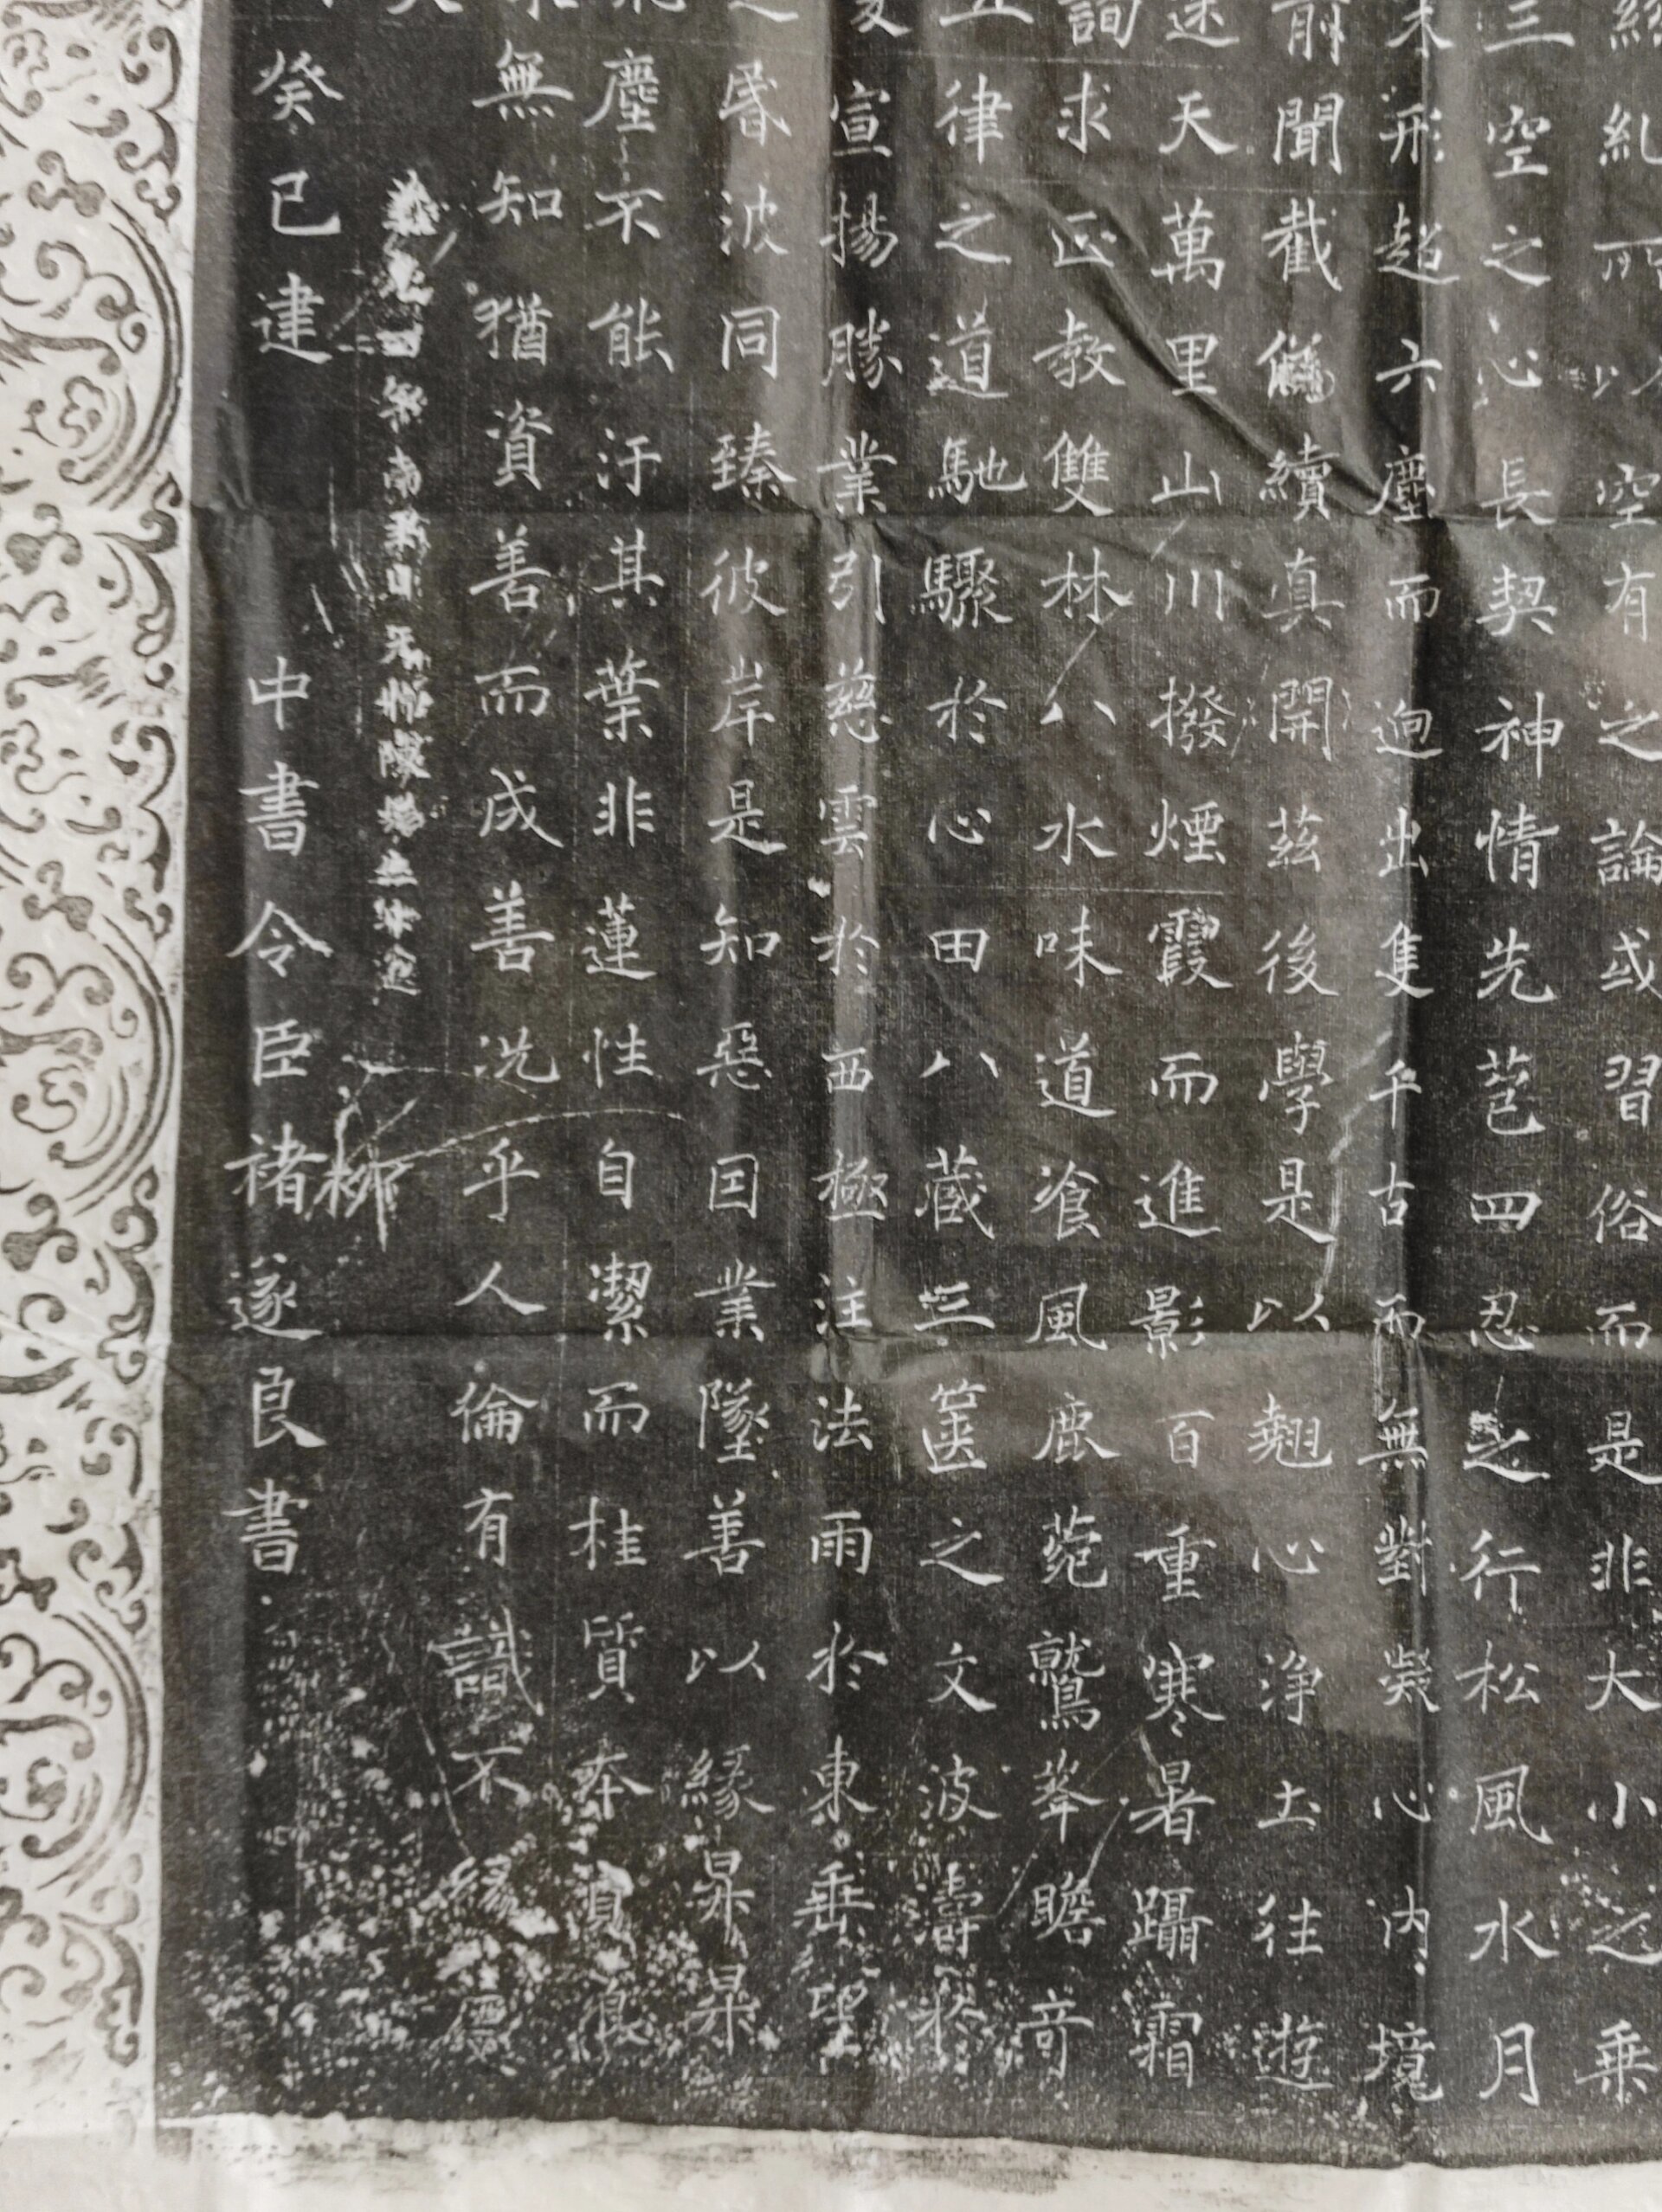 紛糺所以空有之論或習俗而是非大小之乘
三空之心長契神情先苞四忍之行松風水月
未形超六塵而迥出隻千古而無對凝心內境
前聞截偽續真開茲後學是以翹心淨土往遊
迷天萬里山川撥煙霞而進影百重寒暑躡霜
詢求正教雙林八水味道飡風鹿菀鷲峯瞻奇
五律之道馳驟於心田八藏三篋之文波濤於
夏宣揚勝業引慈雲於西極注法雨於東垂聖
之昬波同臻彼岸是知惡因業墜善以緣昇昇
飛塵不能汙其葉非蓮性自潔而桂質本貞良
無知猶資善而成善況乎人倫有識不緣慶
柳
癸巳建 中書令臣褚遂良書